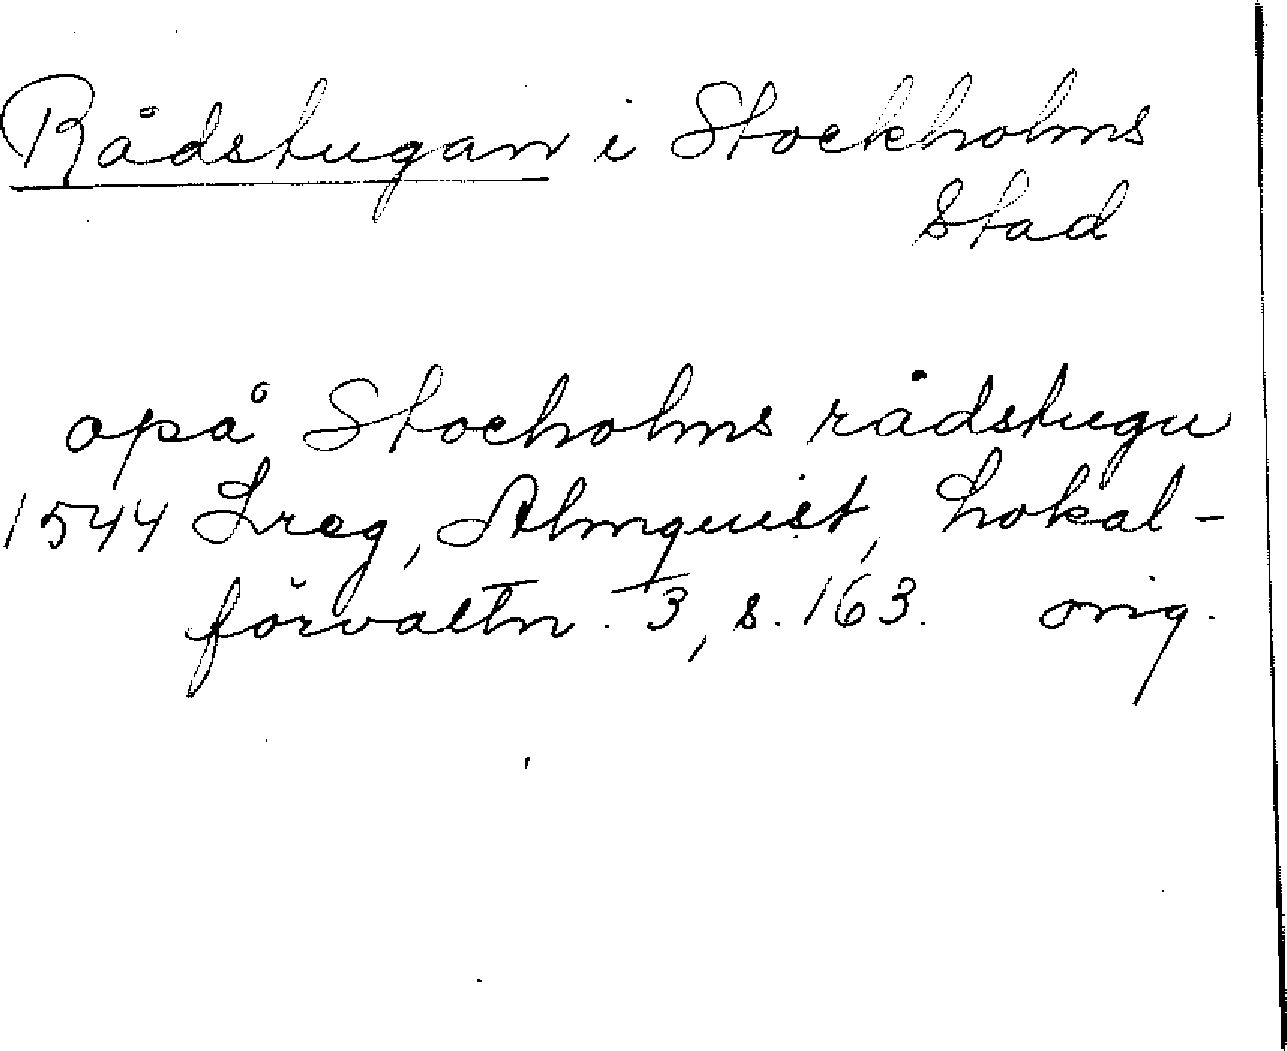 Rådstugan i Stockholms
Stad
opå Stocholms rådstugu
1544 Lreg, Almquist, Lokal-
förvaltn. 3, s. 163. orig.